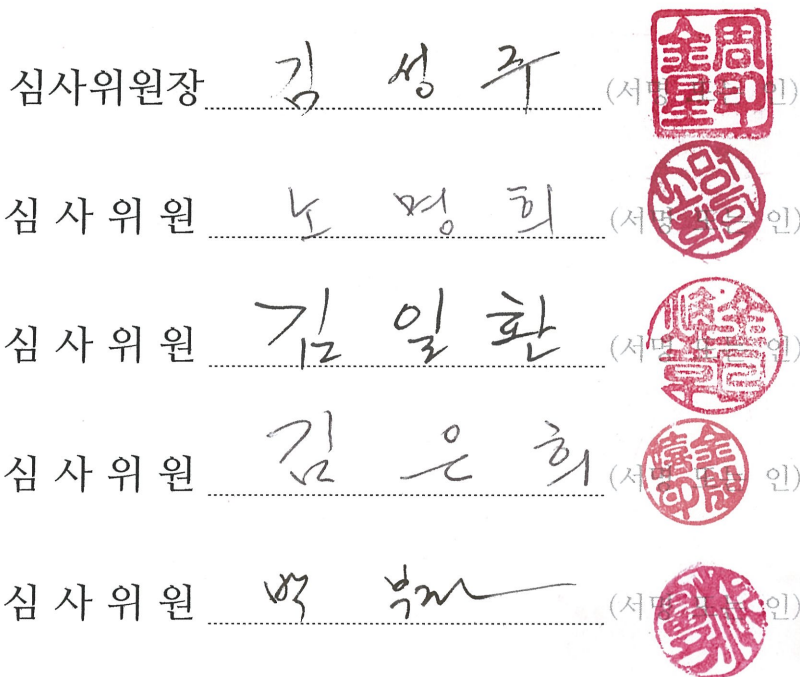 심사위원장 김 성 주 (서명 또는 인)
심 사 위 원 노 명 희 (서명 또는 인)
심 사 위 원 김 일 환 (서명 또는 인)
심 사 위 원 김 은 희 (서명 또는 인)
심 사 위 원 (서명 또는 인)